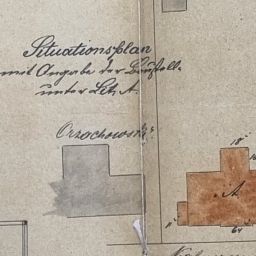 Situationsplan
mit Angabe der Baustelle
unter Lit. A.
Orzechowski
10
A
11
64